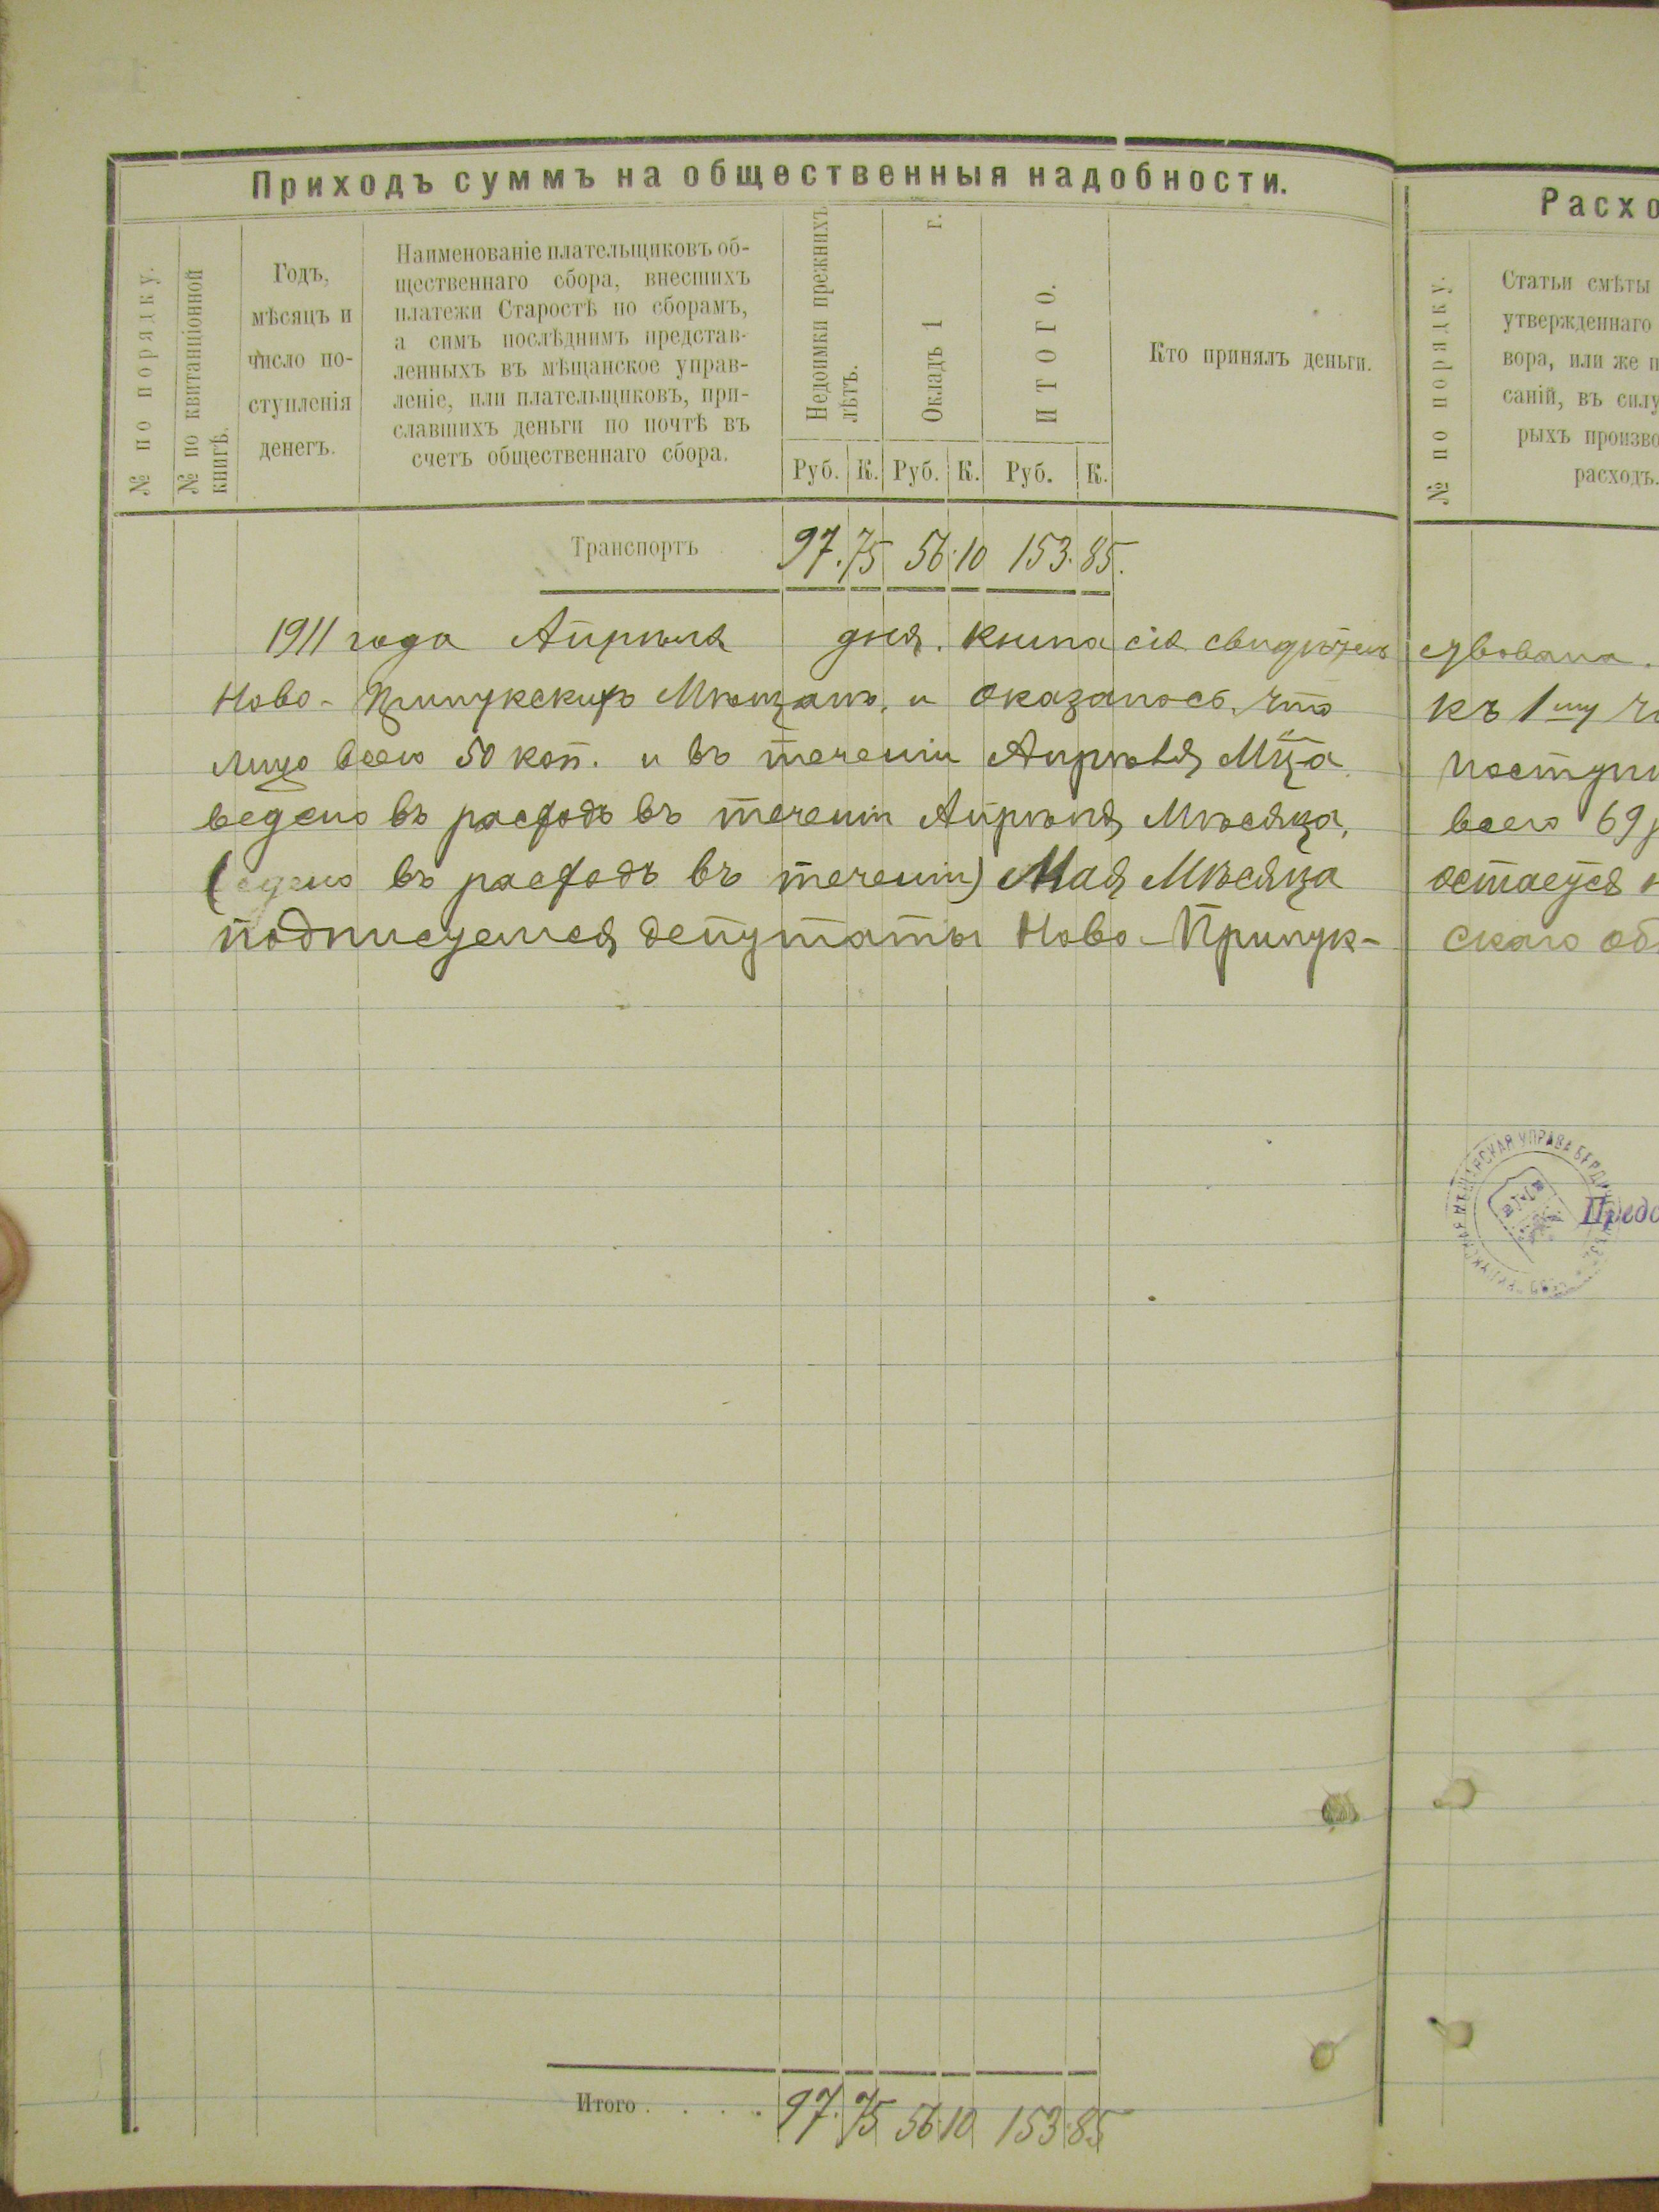 Приходъ суммъ на общественныя надобности.
№ по порядку.
№ по квитанціонной
книгѣ.
Годъ,
мѣсяцъ и
число по-
ступленія
денегъ.
Наименованіе плательщиковъ об-
щественнаго сбора, внесшихъ
платежи Старостѣ по сборамъ,
а симъ послѣднимъ представ-
ленныхъ въ мѣщанское управ-
леніе, или плательщиковъ, при-
славшихъ деньги по почтѣ въ
счетъ общественнаго сбора.
Недоимки прежнихъ
лѣтъ.
Окладъ 1 г.
ИТОГО.
Кто принялъ деньги.
Руб. К. Руб. К. Руб. К.
Транспортъ 97.75 56.10 153.85.
1911 года Апрѣля дня. Книга сія свидѣтель
Ново-Прилукскихъ Мѣщанъ, и оказалось, что
лицо всего 50 коп. и въ теченіи Апрѣля Мца
ведено въ расходъ въ теченіи Апрѣля Мѣсяца,
(едено въ расходъ въ теченіи) Мая Мѣсяца
подписуемся депутаты Ново-Прилук-
Итого.... 97.75 56.10 153.85
Расхо
№ по порядку.
Статьи смѣты
утвержденнаго
вора, или же п
саній, въ силу
рыхъ произво
расходъ.
ствована.
къ 1му чи
поступи
всего 69 р
остается н
скаго об
МѢЩАНСКАЯ УПРАВА БЕРДИ
Предс